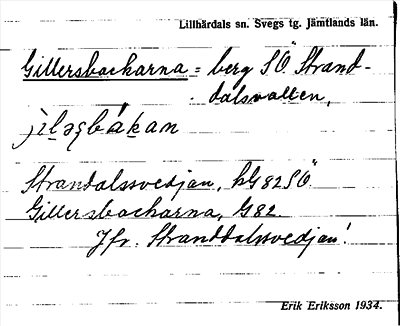 Lillhärdals sn. Svegs tg. Jämtlands län.
Gillersbackarna = berg SÖ Strand-
dalsvallen,
jìləṣbákan
Strandalssvedjan, kG82SÖ
Gillersbackarna, G82.
Jfr. Stranddalssvedjan!
Erik Eriksson 1934.